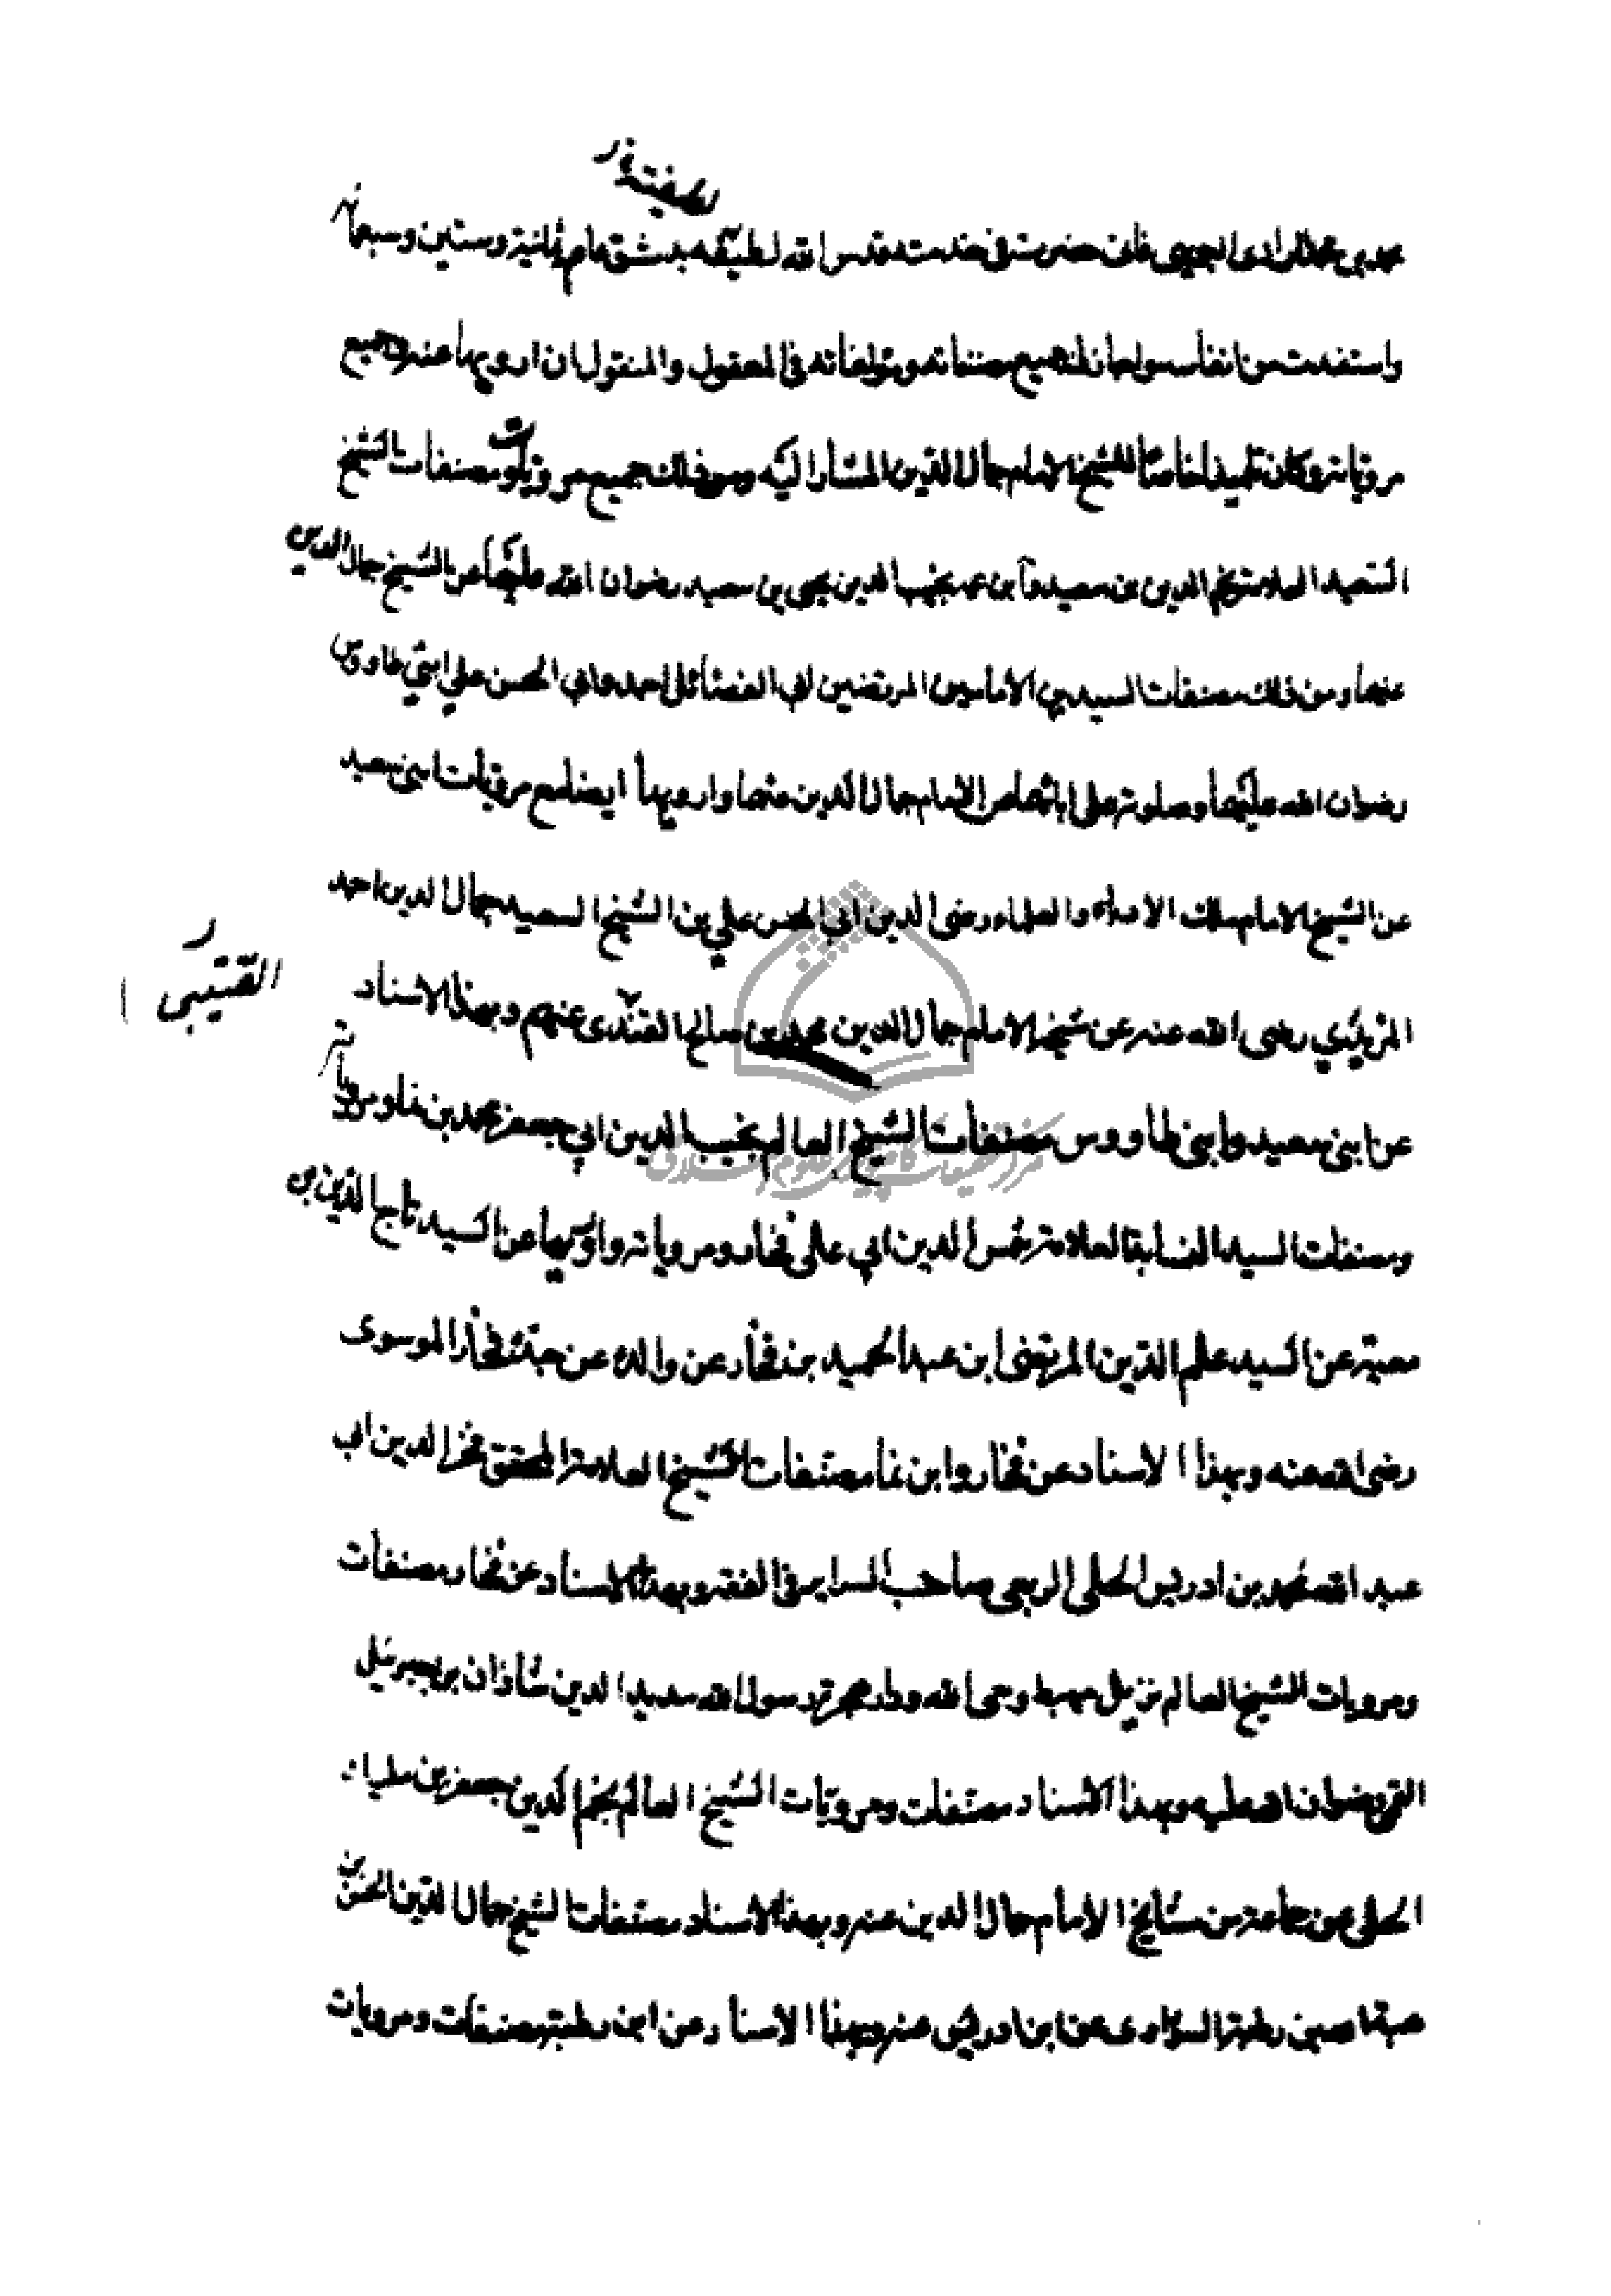 لطيفته ر
محمد بن محمد الرازي البويهي فاني حضرت في خدمته قدس الله لطيفه بدمشق عام ثمانية وستين وسبعمائة
واستفدت من انفاسه واجاز لي جميع مصنفاته ومؤلفاته في المعقول والمنقول ان ارويها عنه وجميع
مروياته وكان تلميذا خاصا للشيخ الامام جمال الدين المشار اليه ومن ذلك جميع مرويات ومصنفات الشيخ
السعيد العلامة نجم الدين بن سعيد وابن عمه نجيب الدين يحيى بن سعيد رضوان الله عليهما عن الشيخ جمال الدين
عنهما ومن ذلك مصنفات السيدين الامامين المرتضين ابي الفضائل احمد وابي الحسن علي ابني طاووس
رضوان الله عليهما وصلوته على ابائهما عن الامام جمال الدين عنهما وارويها ايضا مع مرويات ابني سعيد
عن الشيخ الامام ملك الادباء والعلماء رضي الدين ابي الحسن علي بن الشيخ السعيد جمال الدين احمد
المزيدي رضى الله عنه عن شيخه الامام جمال الدين محمد بن صالح القندى عنهم وبهذا الاسناد
القتيبى ر
عن ابنى سعيد وابنى طاووس مصنفات الشيخ العالم نجيب الدين ابي جعفر محمد بن نما ومروياته
ومصنفات السيد العلامة شمس الدين ابي على فخار ومروياته وارويها عن السيد تاج الدين بن
معية عن السيد علم الدين المرتضى ابن عبد الحميد بن فخار عن والده عن جده فخار الموسوى
رضى الله عنه وبهذا الاسناد عن فخار وابن نما مصنفات الشيخ العلامة المحقق فخر الدين ابي
عبد الله محمد بن ادريس الحلى الربعى صاحب السراير في الفقه وبهذا الاسناد عن فخار مصنفات
ومرويات الشيخ العالم نزيل مهبط وحى الله ودار هجرة رسول الله سديد الدين شاذان بن جبرئيل
القمي رضوان الله عليه وبهذا الاسناد مصنفات ومرويات الشيخ العالم نجم الدين جعفر بن مليك
الحلى عن جماعة من مشايخ الامام جمال الدين عنه وبهذا الاسناد مصنفات الشيخ جمال الدين الحسن بن
هبة الله بن رطبة السوراوى عن ابن ادريس عنه وبهذا الاسناد عن ابن رطبة مصنفات ومرويات